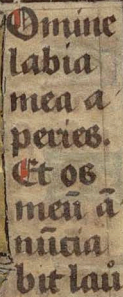 Omine
labia
mea a
peries.
Et os
meū ā
nūcia
bit laū